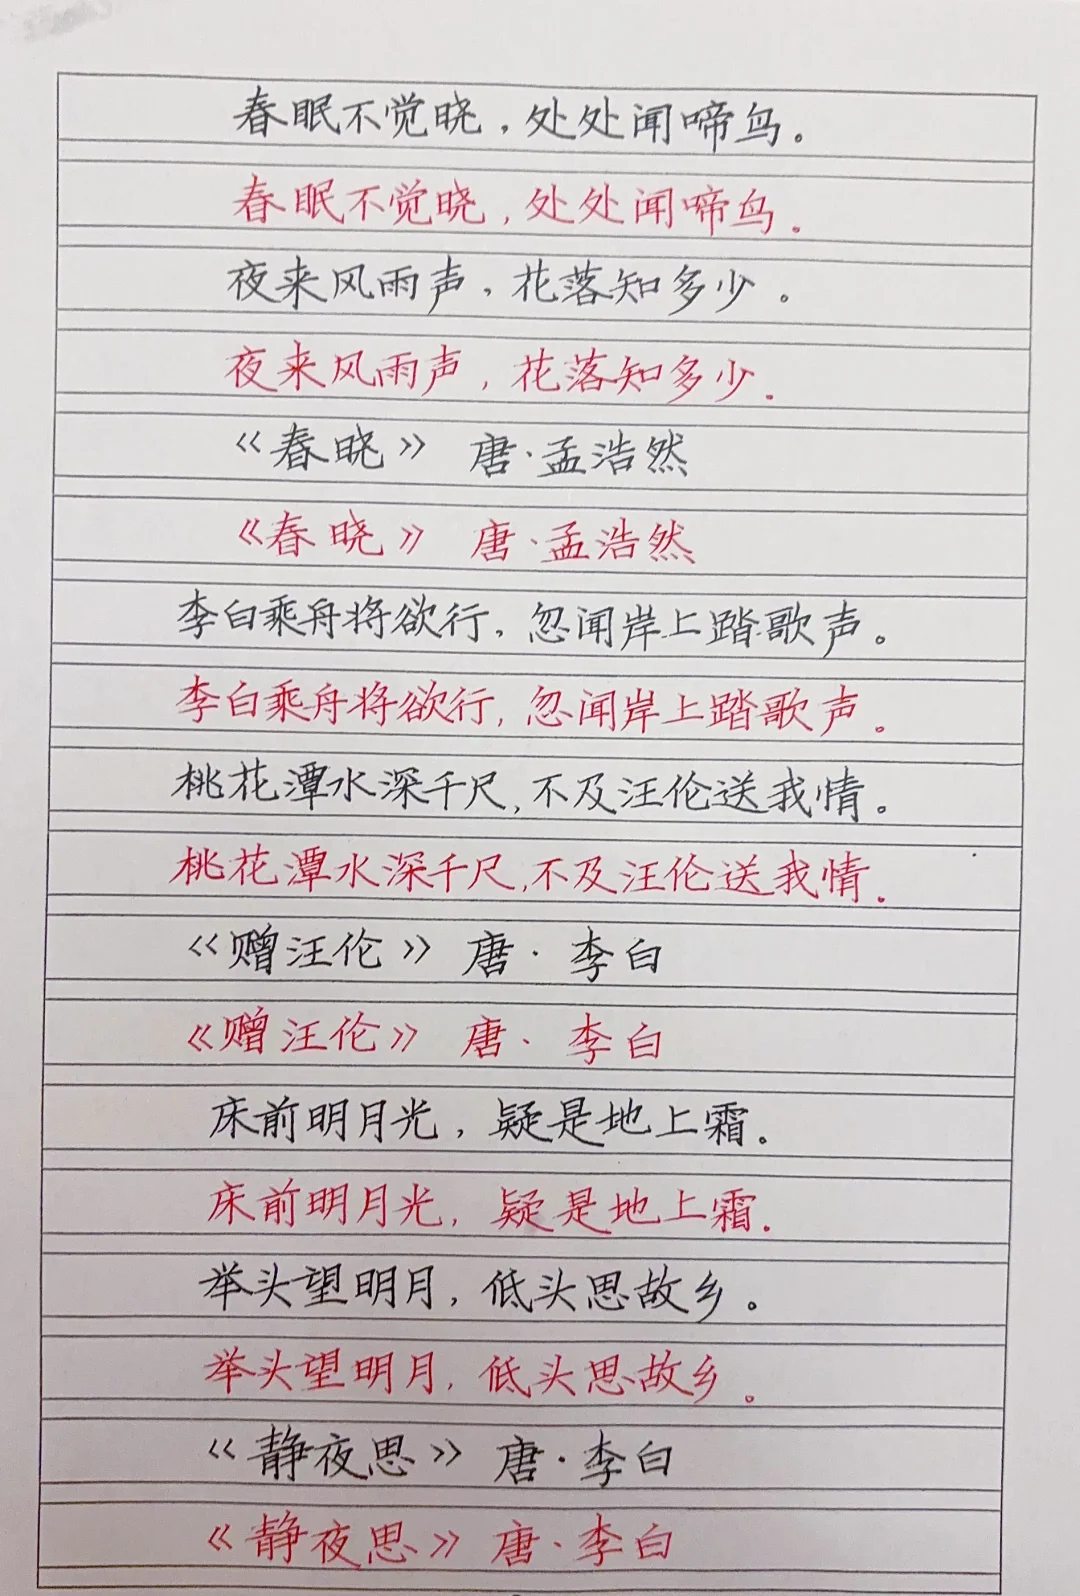 春眠不觉晓，处处闻啼鸟。
春眠不觉晓，处处闻啼鸟。
夜来风雨声，花落知多少。
夜来风雨声，花落知多少。
《春晓》 唐·孟浩然
《春晓》 唐·孟浩然
李白乘舟将欲行，忽闻岸上踏歌声。
李白乘舟将欲行，忽闻岸上踏歌声。
桃花潭水深千尺，不及汪伦送我情。
桃花潭水深千尺，不及汪伦送我情。
《赠汪伦》 唐·李白
《赠汪伦》 唐·李白
床前明月光，疑是地上霜。
床前明月光，疑是地上霜。
举头望明月，低头思故乡。
举头望明月，低头思故乡。
《静夜思》 唐·李白
《静夜思》 唐·李白